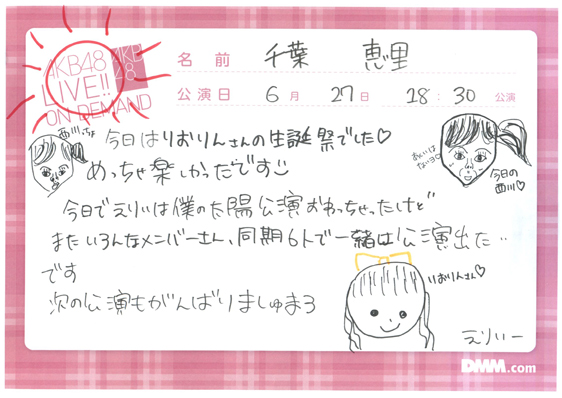 AKB48
LIVE!!
ON DEMAND
AKB
48
名前 千葉 恵里
公演日 6月 27日 18:30 公演
西川ちょ
今日はりおりんさんの生誕祭でした♡
めっちゃ楽しかったです
おといは
ないヨ♡
今日の
西川♡
今日でえりぃは僕の太陽公演おわっちゃったけど
またいろんなメンバーさん、同期6人で一緒に公演出た..
です
次の公演もがんばりましゅまろ
りおりんさん♡
えりぃー
DMM.com